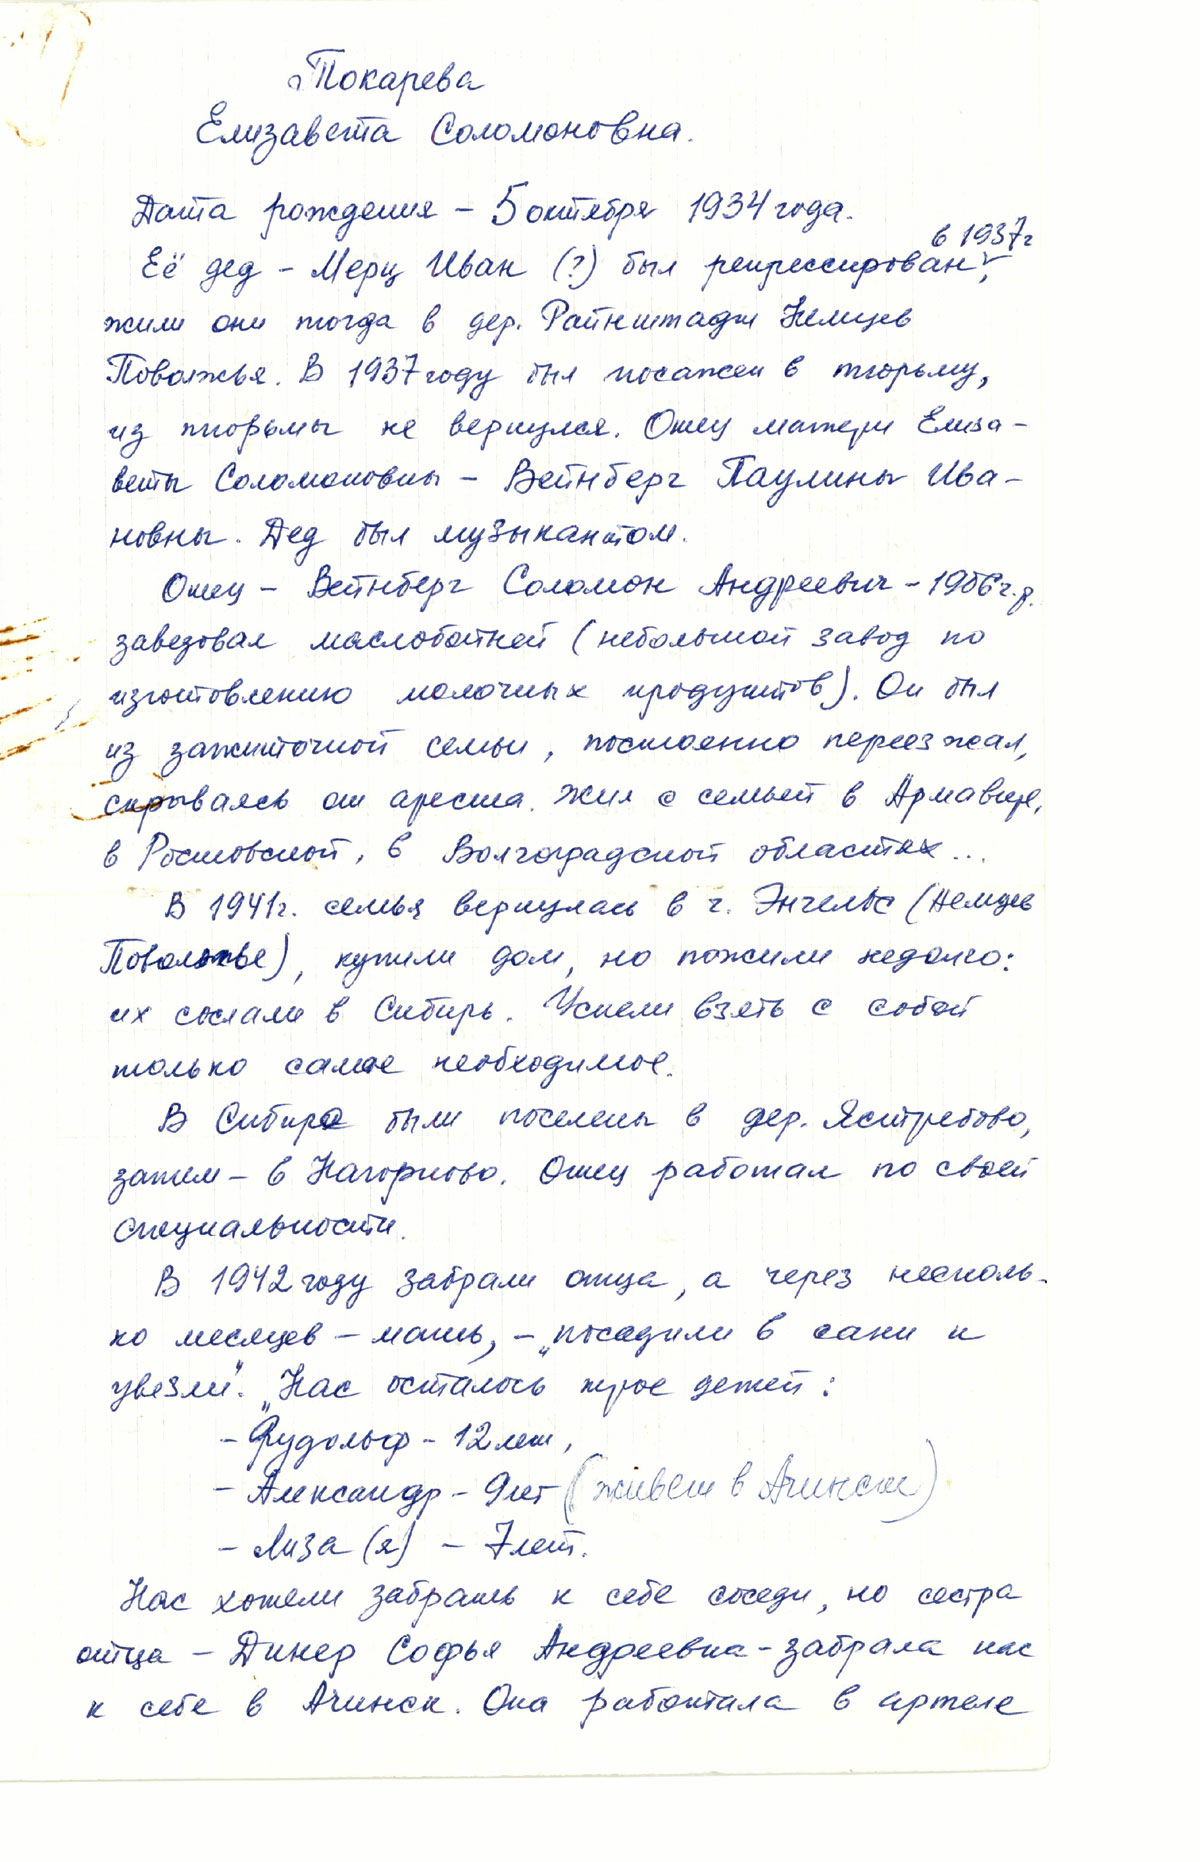 Токарева
Елизавета Соломоновна.
Дата рождения – 5 октября 1934 года.
в 1937 г
Её дед – Мерц Иван (?) был репрессирован,
жили они тогда в дер. Райнштадт Немцев
Поволжья. В 1937 году был посажен в тюрьму,
из тюрьмы не вернулся. Отец матери Елиза-
веты Соломоновны – Вейнберг Паулины Ива-
новны. Дед был музыкантом.
Отец – Вейнберг Соломон Андреевич – 1906 г.р.
заведовал маслобойней (небольшой завод по
изготовлению молочных продуктов). Он был
из зажиточной семьи, постоянно переезжал,
скрываясь от ареста. Жил с семьей в Армавире,
в Ростовской, в Волгоградской областях...
В 1941 г. семья вернулась в г. Энгельс (Немцев
Поволжье), купили дом, но пожили недолго:
их сослали в Сибирь. Успели взять с собой
только самое необходимое.
В Сибири были поселены в дер. Ястребово,
затем – в Нагорново. Отец работал по своей
специальности.
В 1942 году забрали отца, а через несколь-
ко месяцев – мать, – „посадили в сани и
увезли". „Нас осталось трое детей:
– Рудольф – 12 лет,
– Александр – 9 лет (живет в Ачинске)
– Лиза (я) – 7 лет.
Нас хотели забрать к себе соседи, но сестра
отца – Динер Софья Андреевна – забрала нас
к себе в Ачинск. Она работала в артеле